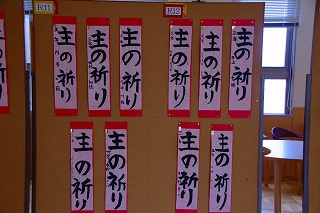 R11
R12
主の祈り
主の祈り
主の祈り
主の祈り
主の祈り
主の祈り
主の祈り
主の祈り
主の祈り
主の祈り